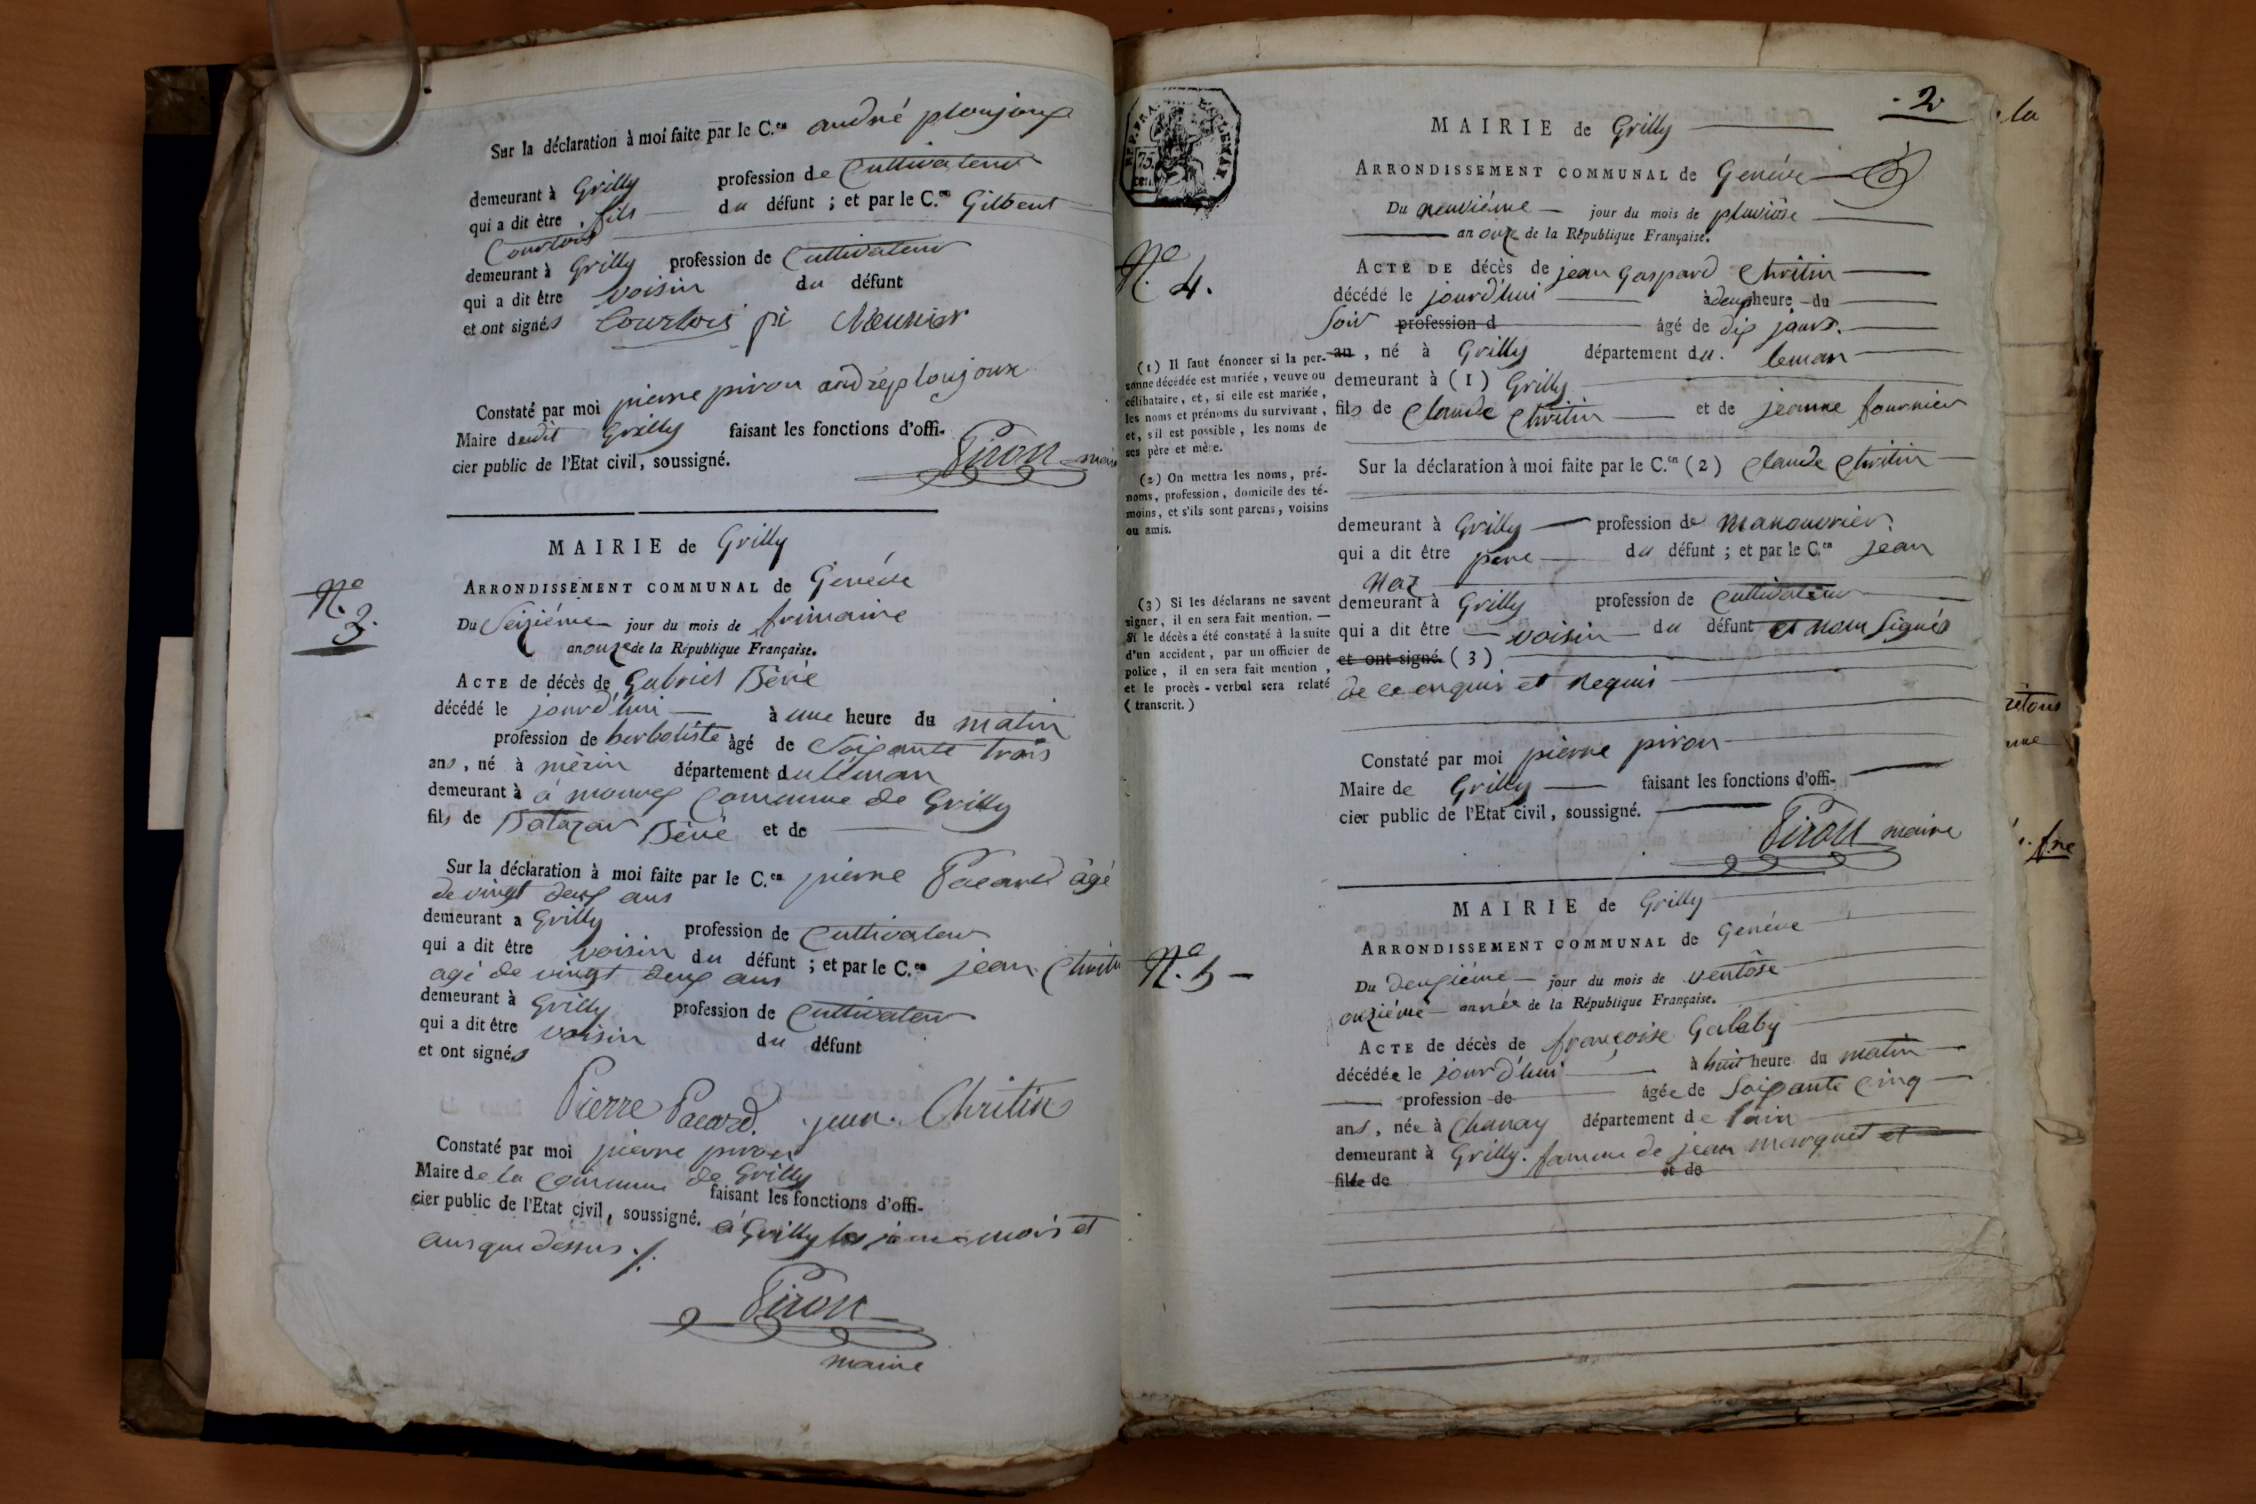 Sur la déclaration à moi faite par le C.en andré ploujoux
demeurant à Grilly profession de Cultivateur
qui a dit être fils du défunt ; et par le C.en Gilbert
Courtois
demeurant à Grilly profession de Cultivateur
qui a dit être voisin du défunt
et ont signés Courtois
Constaté par moi pierre piron andré ploujoux
Maire dudit Grilly faisant les fonctions d'offi-
cier public de l'Etat civil, soussigné. Piron maire
N.o 3.
MAIRIE de Grilly
ARRONDISSEMENT COMMUNAL de Genéve
Du Seiziéme jour du mois de frimaire
an onze de la République Française.
ACTE de décès de Gabriel Béné
décédé le jourd'hui à une heure du matin
profession de herboliste âgé de Soixante trois
ans, né à mérin département du léman
demeurant à à mourex Commune de Grilly
fils de Batazar Béné et de
Sur la déclaration à moi faite par le C.en pierre Pacard âgé
de vingt deux ans
demeurant a Grilly profession de Cultivateur
qui a dit être voisin du défunt ; et par le C.en jean Chritin
agé de vingt deux ans
demeurant à Grilly profession de Cultivateur
qui a dit être voisin du défunt
et ont signés
Pierre Pacard. jean. Chritin
Constaté par moi pierre piron
Maire de la Commune de Grilly faisant les fonctions d'offi-
cier public de l'Etat civil, soussigné. à Grilly les mois et
ans que dessus ./.
Piron
maire
2.
REP. FRA.
75
cen.
MAIRIE de Grilly
ARRONDISSEMENT COMMUNAL de Genéve
Du neuviéme jour du mois de pluviôse
an onze de la République Française.
N.o 4.
ACTE DE décès de jean Gaspard Chritin
décédé le jourd'hui à deux heure du
Soir profession d âgé de dix jours.
an, né à Grilly département du. leman
demeurant à (1) Grilly
fils de Claude Chritin et de jeanne fournier
Sur la déclaration à moi faite par le C.en (2) Claude Chritin
demeurant à Grilly profession de Manouvrier.
qui a dit être pere du défunt ; et par le C.en Jean
Naz
demeurant à Grilly profession de Cultivateur
qui a dit être voisin du défunt et nom Signés
et ont signé. (3)
de ce enquis et Requis
Constaté par moi pierre piron
Maire de Grilly faisant les fonctions d'offi-
cier public de l'Etat civil, soussigné.
Piron maire
(1) Il faut énoncer si la per-
sonne décédée est mariée, veuve ou
célibataire, et, si elle est mariée,
les noms et prénoms du survivant,
et, s'il est possible, les noms de
ses père et mère.
(2) On mettra les noms, pré-
noms, profession, domicile des té-
moins, et s'ils sont parens, voisins
ou amis.
(3) Si les déclarans ne savent
signer, il en sera fait mention. —
Si le décès a été constaté à la suite
d'un accident, par un officier de
police, il en sera fait mention,
et le procès-verbal sera relaté
( transcrit. )
MAIRIE de Grilly
ARRONDISSEMENT COMMUNAL de Genéve
N.o 5
Du deuxiéme jour du mois de ventôse
onziéme année de la République Française.
ACTE de décès de françoise Galaby
décédée le jourd'hui à huit heure du matin
profession de âgée de Soixante Cinq
ans, née à Chanay département de l'ain
demeurant à Grilly. famme de jean marquet et
fille de et de
la